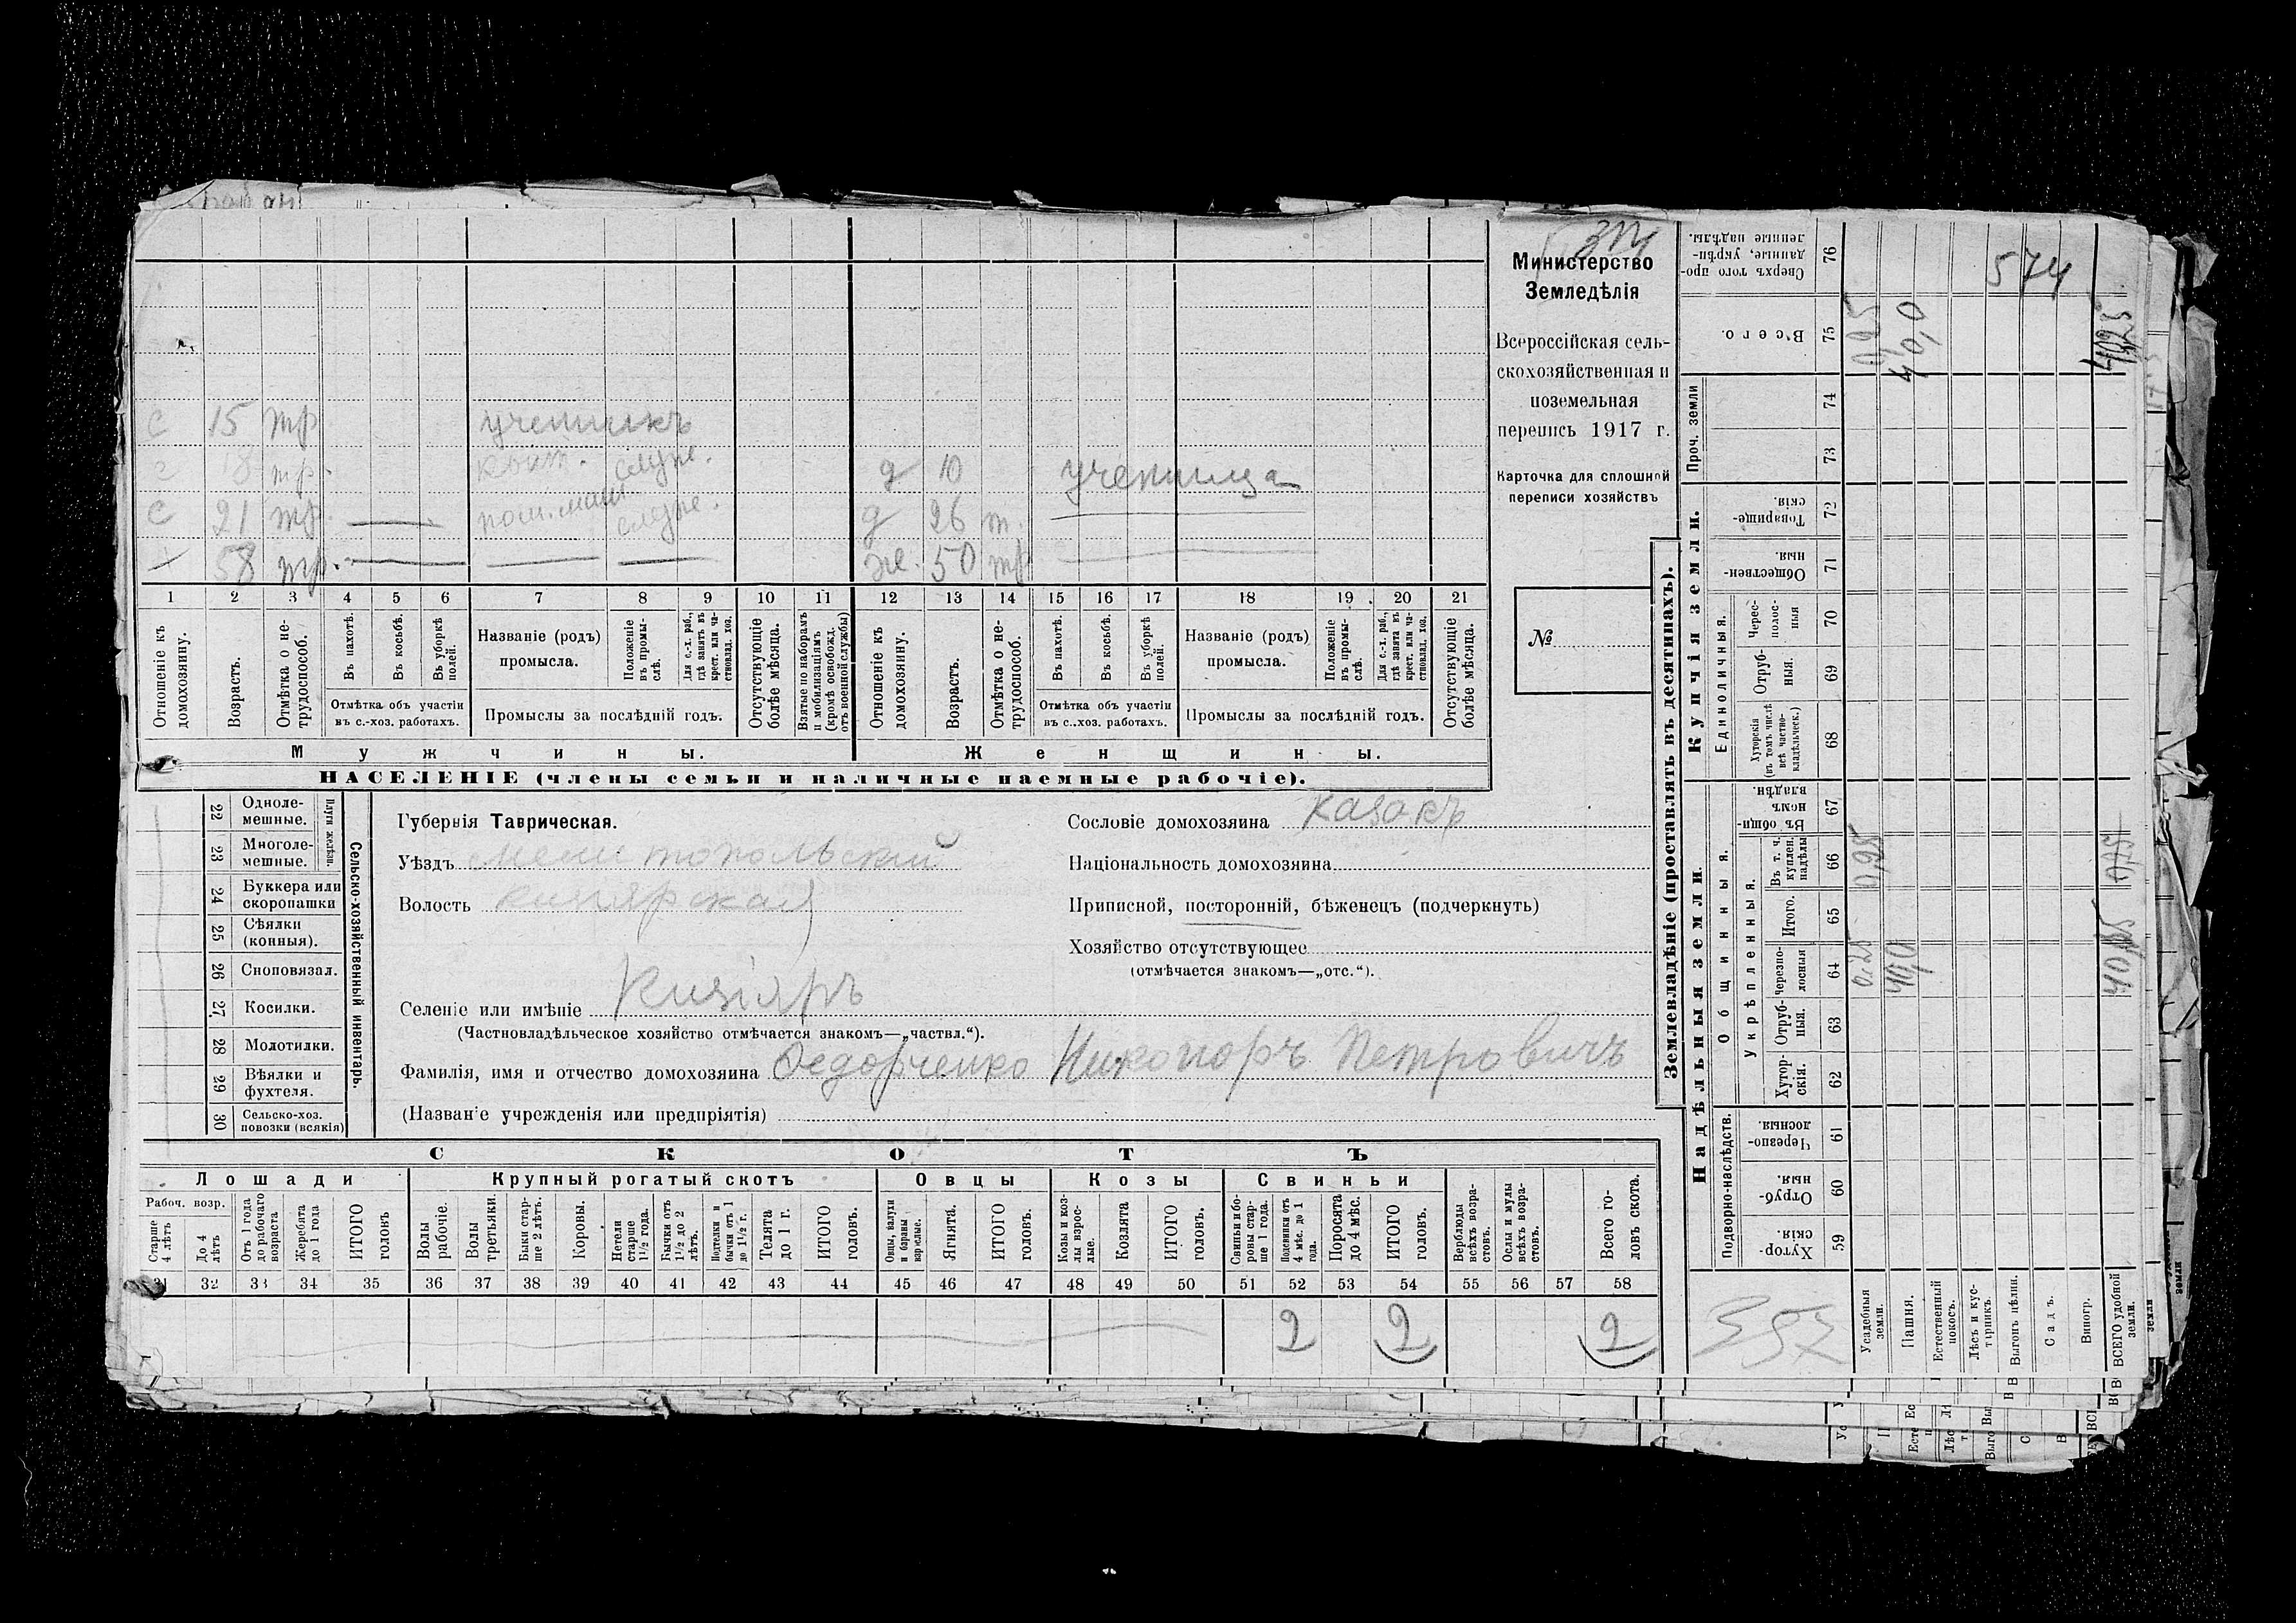 Министерство
Земледѣлія
Всероссійская сель-
скохозяйственная и
поземельная
перепись 1917 г.
Карточка для сплошной
переписи хозяйствъ
№
574
с 15 тр ученикъ
с 18 тр. служ. д 10 ученица
с 21 тр. служ. д 26 т.
х 58 тр. же. 50 тр
1 2 3 4 5 6 7 8 9 10 11 12 13 14 15 16 17 18 19 20 21
Отношеніе къ домохозяину.
Возрастъ.
Отмѣтка о не-трудоспособ.
Въ пахотѣ.
Въ косьбѣ.
Въ уборкѣ полей.
Отмѣтка объ участіи въ с.-хоз. работахъ.
Названіе (родъ) промысла.
Положеніе въ промы-слѣ.
Для с.-х. раб., гдѣ занятъ въ крест. или ча-стновлад. хоз.
Промыслы за послѣдній годъ.
Отсутствующіе болѣе мѣсяца.
Взятые по наборамъ и мобилизаціямъ (кромѣ освобожд. отъ военной службы)
Отношеніе къ домохозяину.
Возрастъ.
Отмѣтка о не-трудоспособ.
Въ пахотѣ.
Въ косьбѣ.
Въ уборкѣ полей.
Отмѣтка объ участіи въ с..хоз. работахъ.
Названіе (родъ) промысла.
Положеніе въ промы-слѣ.
Для с.-х. раб., гдѣ занята въ крест. или ча-стновлад. хоз.
Промыслы за послѣдній годъ.
Отсутствующіе болѣе мѣсяца.
Мужчины.
Женщины.
НАСЕЛЕНІЕ (члены семьи и наличные наемные рабочіе).
Сельско-хозяйственный инвентарь.
Плуги желѣзн.
22 Одноле-мешные.
23 Многоле-мешные.
24 Буккера или скоропашки
25 Сѣялки (конныя).
26 Сноповязал.
27 Косилки.
28 Молотилки.
29 Вѣялки и фухтеля.
30 Сельско-хоз. повозки (всякія)
Губернія Таврическая.
Уѣздъ Мелитопольскій
Волость Кизіярская
Селеніе или имѣніе Кизіяръ
(Частновладѣльческое хозяйство отмѣчается знакомъ—„частвл.“).
Фамилія, имя и отчество домохозяина Федорченко Никоноръ Петровичъ
(Названіе учрежденія или предпріятія)
Сословіе домохозяина казакъ
Національность домохозяина
Приписной, посторонній, бѣженецъ (подчеркнуть)
Хозяйство отсутствующее
(отмѣчается знакомъ—„отс.“).
СКОТЪ
Лошади
Крупный рогатый скотъ
Овцы
Козы
Свиньи
Рабоч. возр.
Старше 4 лѣтъ
До 4 лѣтъ
Отъ 1 года до рабочаго возраста
Жеребята до 1 года
ИТОГО головъ
Волы рабочіе.
Волы третьяки.
Быки стар-ше 2 лѣтъ.
Коровы.
Нетели старше 1½ года.
Бычки отъ 1½ до 2 лѣтъ.
Подтелки и бычки отъ 1 до 1½ г.
Телята до 1 г.
ИТОГО головъ.
Овцы, валухи и бараны взрослые.
Ягнята.
ИТОГО головъ.
Козы и коз-лы взрос-лые.
Козлята
ИТОГО головъ.
Свиньи и бо-ровы стар-ше 1 года.
Подсвинки отъ 4 мѣс. до 1 года.
Поросята до 4 мѣс.
ИТОГО головъ.
Верблюды всѣхъ возра-стовъ.
Ослы и мулы всѣхъ возра-стовъ.
Всего го-ловъ скота.
31 32 33 34 35 36 37 38 39 40 41 42 43 44 45 46 47 48 49 50 51 52 53 54 55 56 57 58
2 2 2
Землевладѣніе (проставлять въ десятинахъ).
Надѣльныя земли
Купчія земли.
Проч. земли
Подворно-наслѣдств.
Общинныя.
Укрѣпленныя.
Единоличныя.
Хутор-скія. 59
Отруб-ныя. 60
Черезпо-лосныя 61
Хутор-скія. 62
Отруб-ныя. 63
Черезпо-лосныя 64
Итого. 65
Въ т. ч. куплен. надѣлы 66
Въ общи-номъ владѣн. 67
Хуторскія (въ томъ числѣ всѣ частно-владѣльческ.) 68
Отруб-ныя. 69
Черес-полос-ныя 70
Обществен-ныя. 71
Товарище-скія. 72
73
74
Всего. 75
Сверхъ того про-данные, укрѣп-ленные надѣлы. 76
Усадебныя земли. 0,25 0,25 0,25
Пашня. 40,0 40,0
Естественный покосъ.
Лѣсъ и кус-тарникъ.
Выгонъ цѣлин.
Садъ.
Виногр.
ВСЕГО удобной земли.